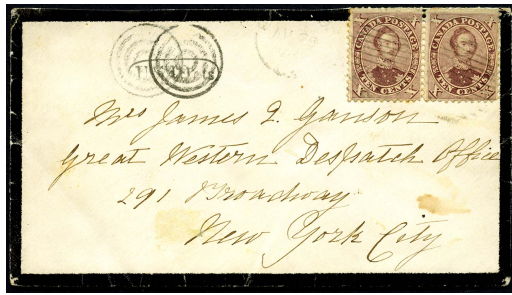 X CANADA POSTAGE X
X TEN CENTS X
X CANADA POSTAGE X
X TEN CENTS X
Mrs James L. Ganson
Great Western Despatch Office
291 Broadway
New York City